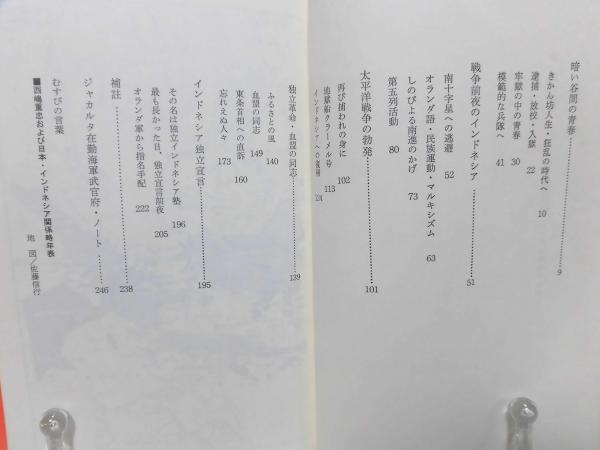 暗い谷間の青春……9
きかん坊人生・狂乱の時代へ 10
逮捕・放校・入獄 22
牢獄の中の青春 30
模範的な兵隊へ 41
戦争前夜のインドネシア……51
南十字星への逃避 52
オランダ語・民族運動・マルキシズム 63
しのびよる南進のかげ 73
第五列活動 80
太平洋戦争の勃発……101
再び捕われの身に 102
地獄船クラーメル号 113
インドネシアへの復帰 124
独立革命・血盟の同志……139
ふるさとの風 140
血盟の同志 149
東条首相への直訴 160
忘れえぬ人々 173
インドネシア独立宣言……195
その名は独立インドネシア塾 196
最も長かった日、独立宣言前夜 205
オランダ軍から指名手配 222
補註……238
ジャカルタ在勤海軍武官府・ノート……246
むすびの言葉
■西嶋重忠および日本・インドネシア関係略年表
地図／佐藤信行